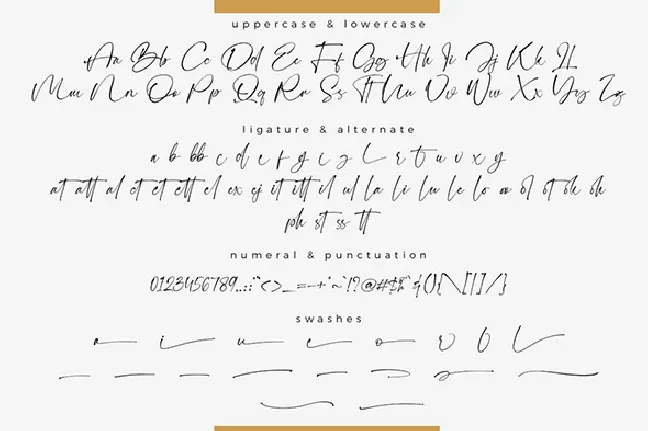 uppercase & lowercase
Aa Bb Cc Dd Ee Ff Gg Hh Ii Jj Kk Ll
Mm Nn Oo Pp Qq Rr Ss Tt Uu Vv Ww Xx Yy Zz
ligature & alternate
a b bb c d e f g i j l r t u v x y
at att al ct et ett el ex ej it itt il ul la li lu le lo ol ot ok oh
ph st ss tt
numeral & punctuation
0123456789
swashes
a i u e o